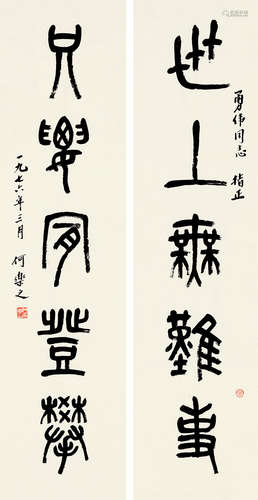 世上無難事
勇伟同志 指正
只要肯登攀
一九七六年三月 何樂之